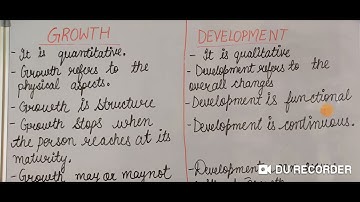 GROWTH
- It is quantitative.
- Growth refers to the
physical aspects.
- Growth is structure
- Growth stops when
the person reaches at its
maturity.
- Growth may or maynot
DEVELOPMENT
- It is qualitative
- Development refers to the
overall changes
- Development is functional
- Development is continuous.
- Development
DU RECORDER